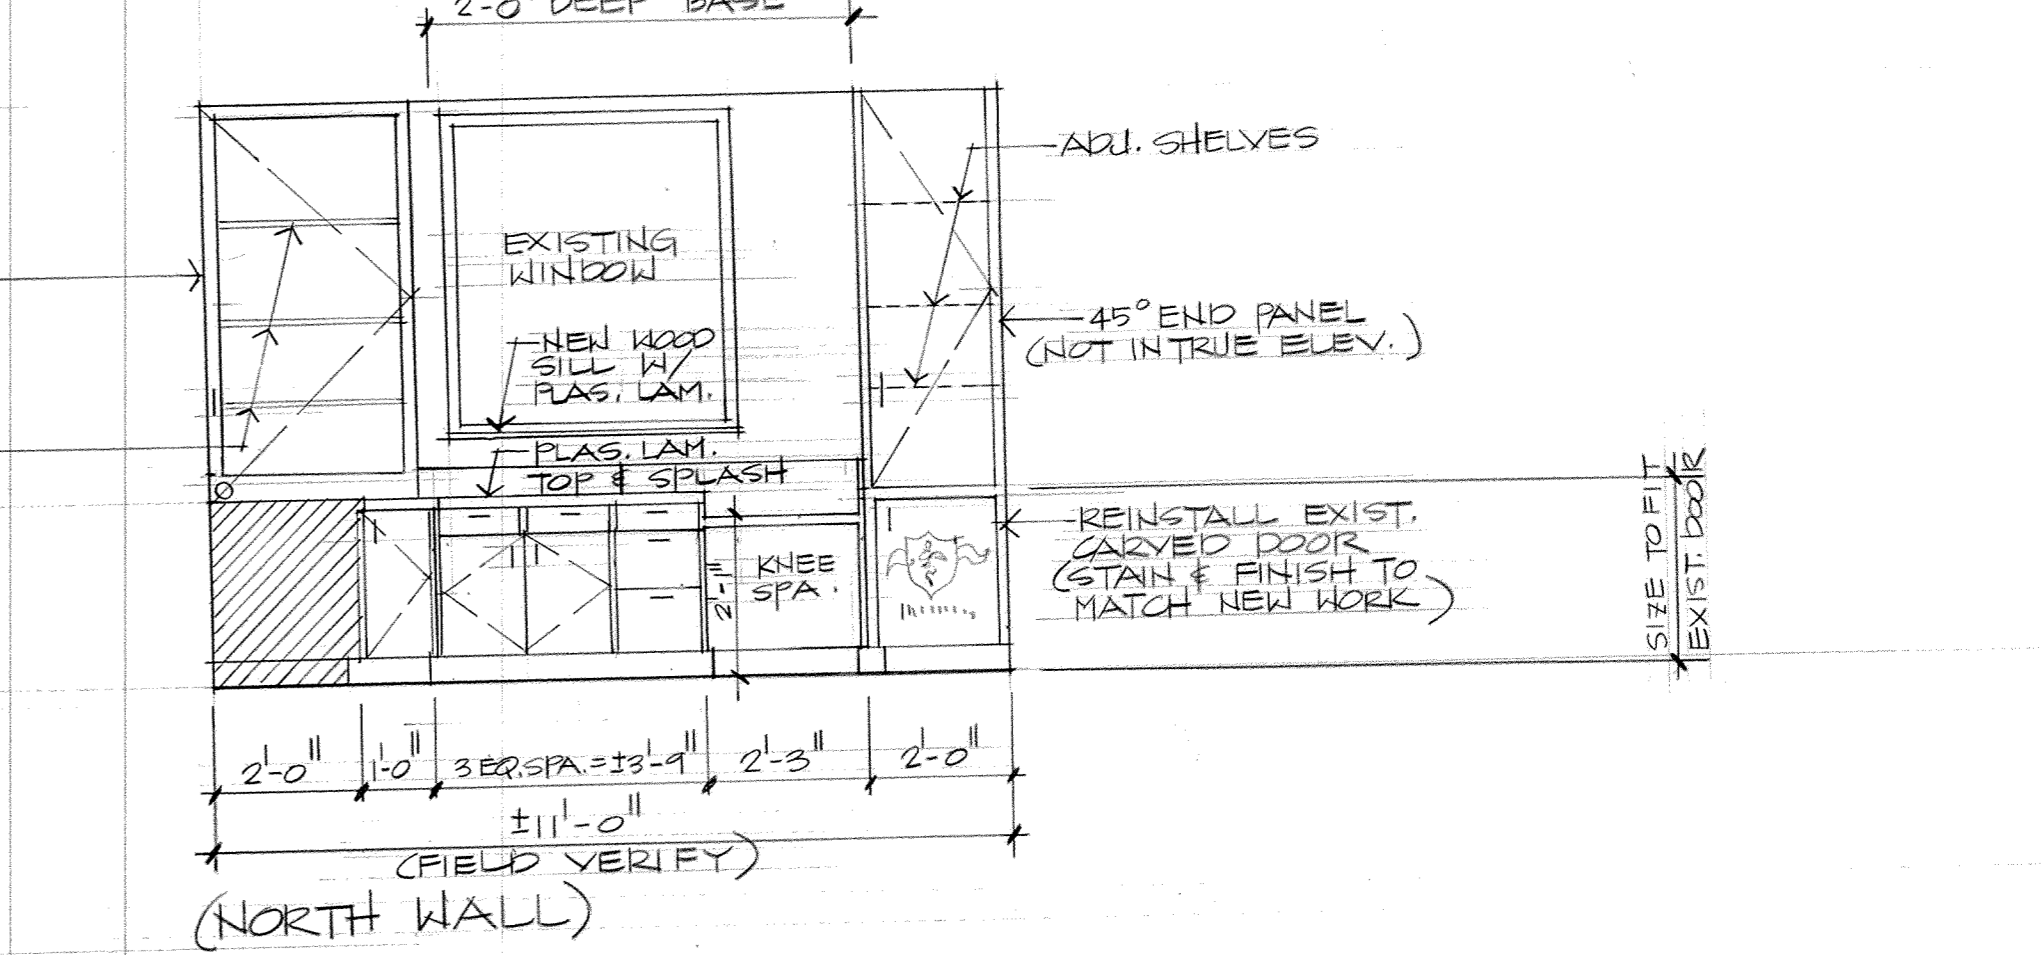 2'-0" DEEP BASE
ADJ. SHELVES
EXISTING
WINDOW
NEW WOOD
SILL W/
PLAS. LAM.
45° END PANEL
(NOT IN TRUE ELEV.)
PLAS. LAM.
TOP & SPLASH
REINSTALL EXIST.
CARVED DOOR
(STAIN & FINISH TO
MATCH NEW WORK)
SIZE TO FIT
EXIST. DOOR
KNEE
SPA.
2'-0"
1'-0"
3 EQ. SPA. = ±3'-9"
2'-3"
2'-0"
±11'-0"
(FIELD VERIFY)
(NORTH WALL)